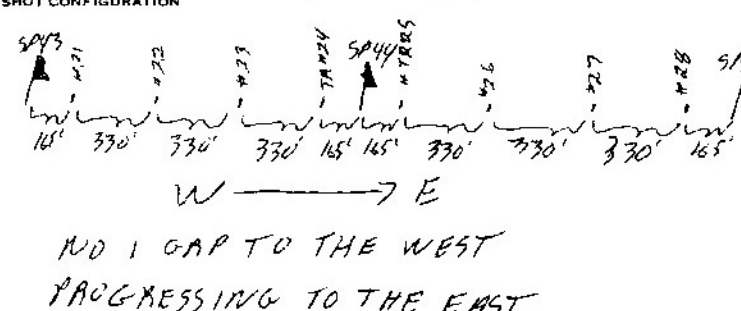 SHOT CONFIGURATION
SP43 #21 #22 #23 TR#24 SP44 #TR25 #26 #27 #28
165' 330' 330' 330' 165' 165' 330' 330' 330' 165'
W → E
NO 1 GAP TO THE WEST
PROGRESSING TO THE EAST